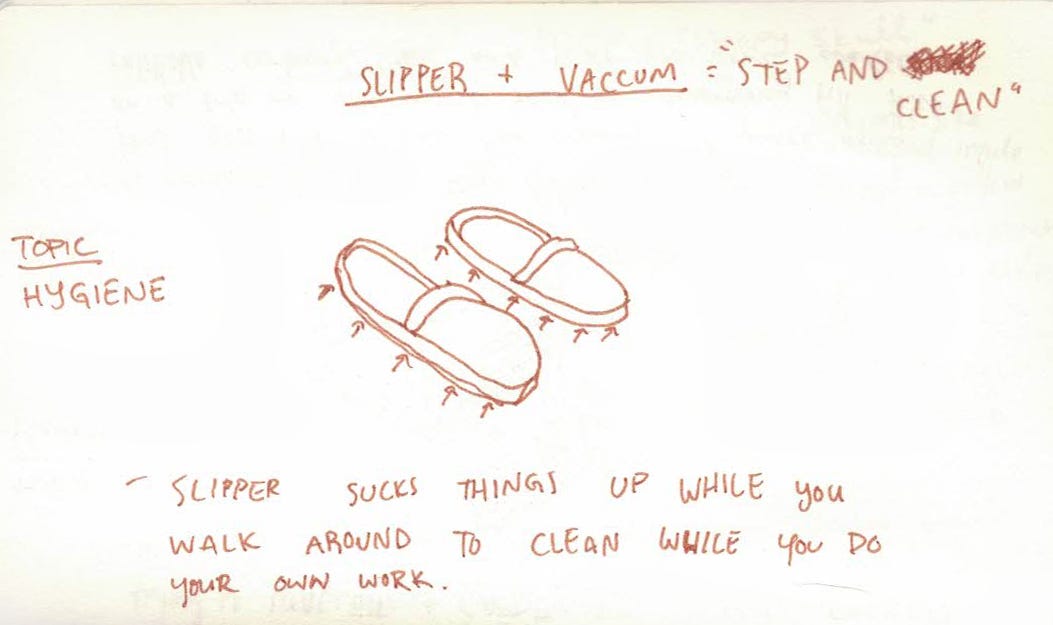 SLIPPER + VACCUM = "STEP AND
CLEAN"
TOPIC
HYGIENE
- SLIPPER SUCKS THINGS UP WHILE you
WALK AROUND TO CLEAN WHILE YOU DO
YOUR OWN WORK.